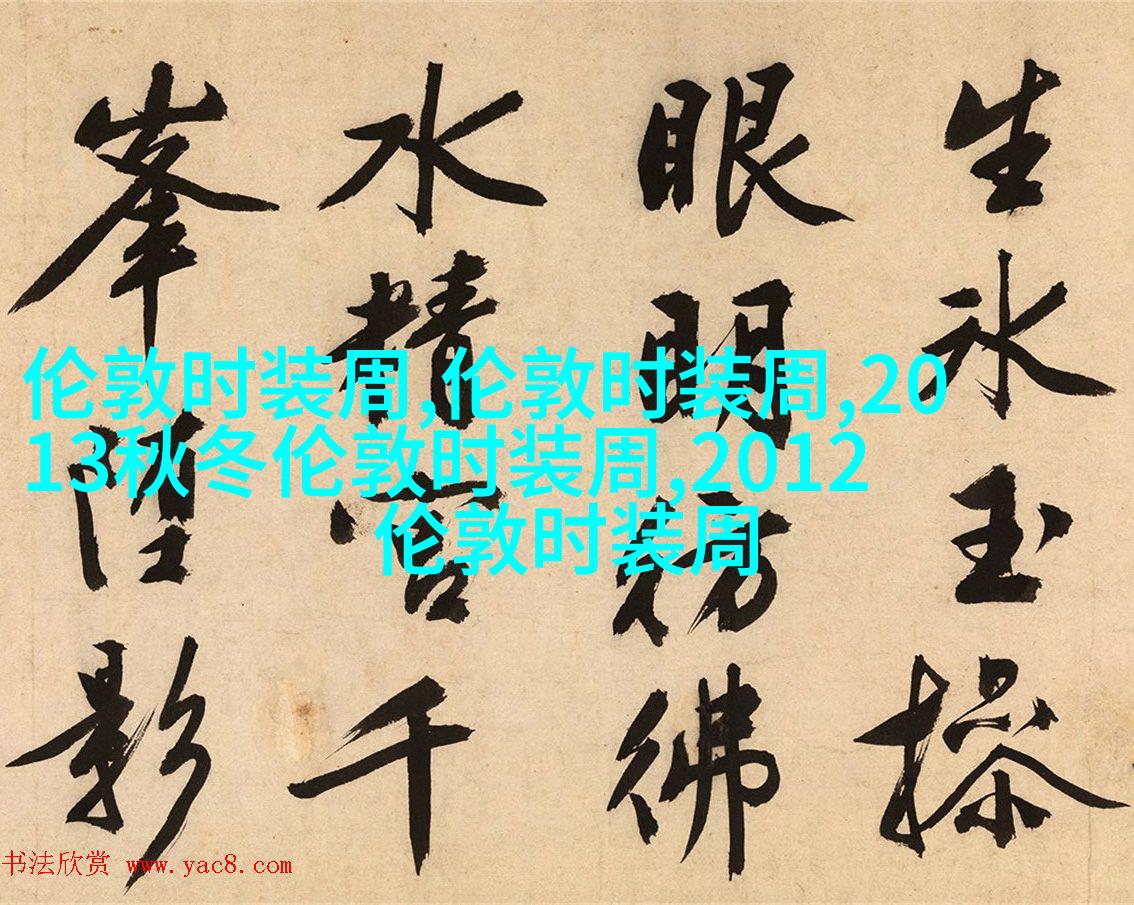 生氷玉操
眼明彷彿
水精宮千
峯影
伦敦时装周,伦敦时装周,20
13秋冬伦敦时装周,2012
伦敦时装周
书法欣赏 www.yac8.com